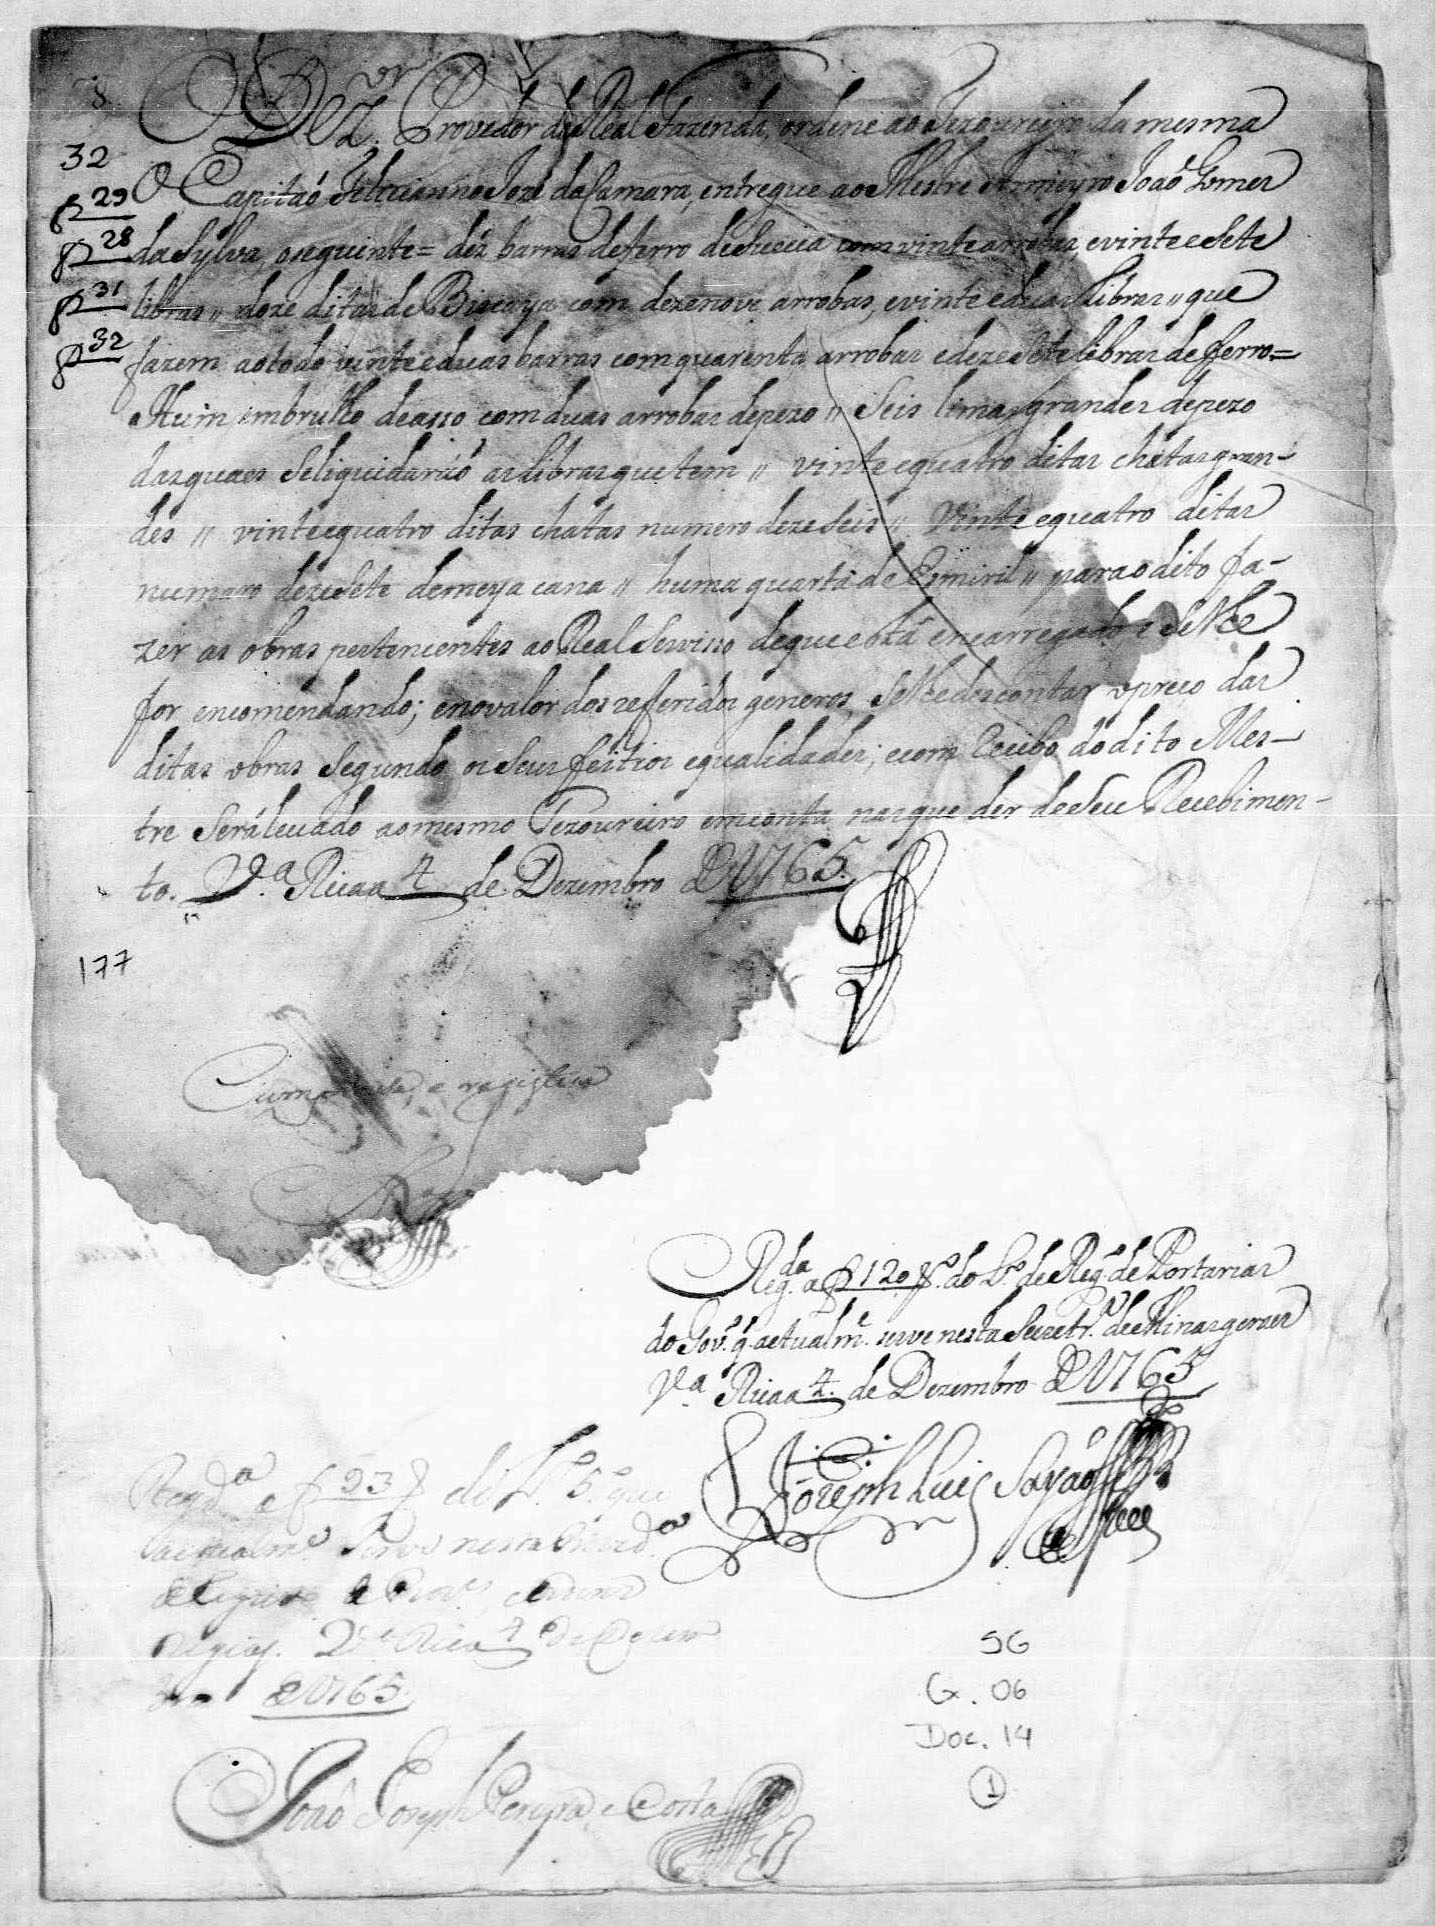 O Dez.or Provedor da Real Fazenda, ordene ao Tezoureyro da mesma
32
O Capitaó Felicianno Jozé da Camara, entregue ao Mestre Armeyro Joaó Gomes
f 29
da Sylva, o seguinte = déz barras de ferro de Suecia com vinte arrobas, e vinte e Sete
f 28
libras // doze ditas de Biscaya com dezenove arrobas, e vinte e duas libras // que
f 31
fazem ao todo vinte e duas barras com quarenta arrobas e deze Sete libras de ferro =
f 32
Hum embrulho de asso com duas arrobas de pezo // Seis limas grandes de pezo
das quaes Se liquidaraó as libras que tem // vinte e quatro ditas chatas gran-
des // vinte e quatro ditas chatas numero deze Seis // Vinte e quatro ditas
numero deze Sete de meya cana // huma quarta de Esmiril // para o dito fa-
zer as obras pertencentes ao Real Servisso de que está encarregado e Se lhe
for encomendando; e no valor dos refferidos generos, Se lhe descontar o preço das
ditas obras Segundo os Seus feitios e qualidades; e com Recibo do dito Mes-
tre Será levado ao mesmo Tezoureiro em conta nas que der de Seu Recebimen-
to. V.a Rica a 4 de Dezembro de 1765.
177
Cumprasse, e registese
Reg.da a f 120 v.o do L.o de Reg.o de Portarias
do Gov.o q̃ actualm.e serve nesta Secretr.a de Minas geraes
V.a Rica a 4. de Dezembro de 1765
Joseph Luis Sayaó
Reg.da a f 93 do L.o 5.o que
actualm.e Serve nesta
V.a Rica 4 de Dezem
bro de 1765.
Joaó Joseph Pereyra e Costa
SG
Cx. 06
Doc. 14
1